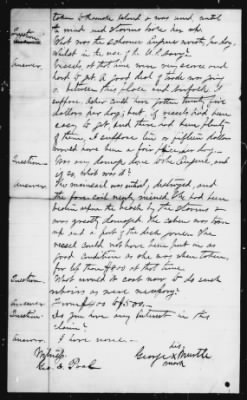 taken to Roanoke Island and was used, until
the wind and storms broke her up.
Question What was the Schooner Empire worth, per day,
whilst in the use of the U.S. Navy?
Answer Vessels at that time were very scarce and
hard to get. A good deal of trade was going
on between this place and Norfolk. I
suppose she could have gotten twenty five
dollars per day; but if vessels had been
easy to get and there had been plenty
of them, I suppose ten or fifteen dollars
would have been a fair price per day.
Question Was any damage done to the Empire, and
if so, what was it?
Answer The mainsail was entirely destroyed, and
the fore-sail nearly ruined. She had been
broken upon the beach by the storms &
was greatly damaged. The cabin was torn
up and a part of the deck gone. The
vessel could not have been put in as
good condition as she was when taken,
for less than $400 at that time.
Question What would it cost now to do such
repairs as were necessary?
Answer From $400 to $500.
Question Do you have any interest in this
claim?
Answer I have none.
Witness his
Geo. E. George X
mark